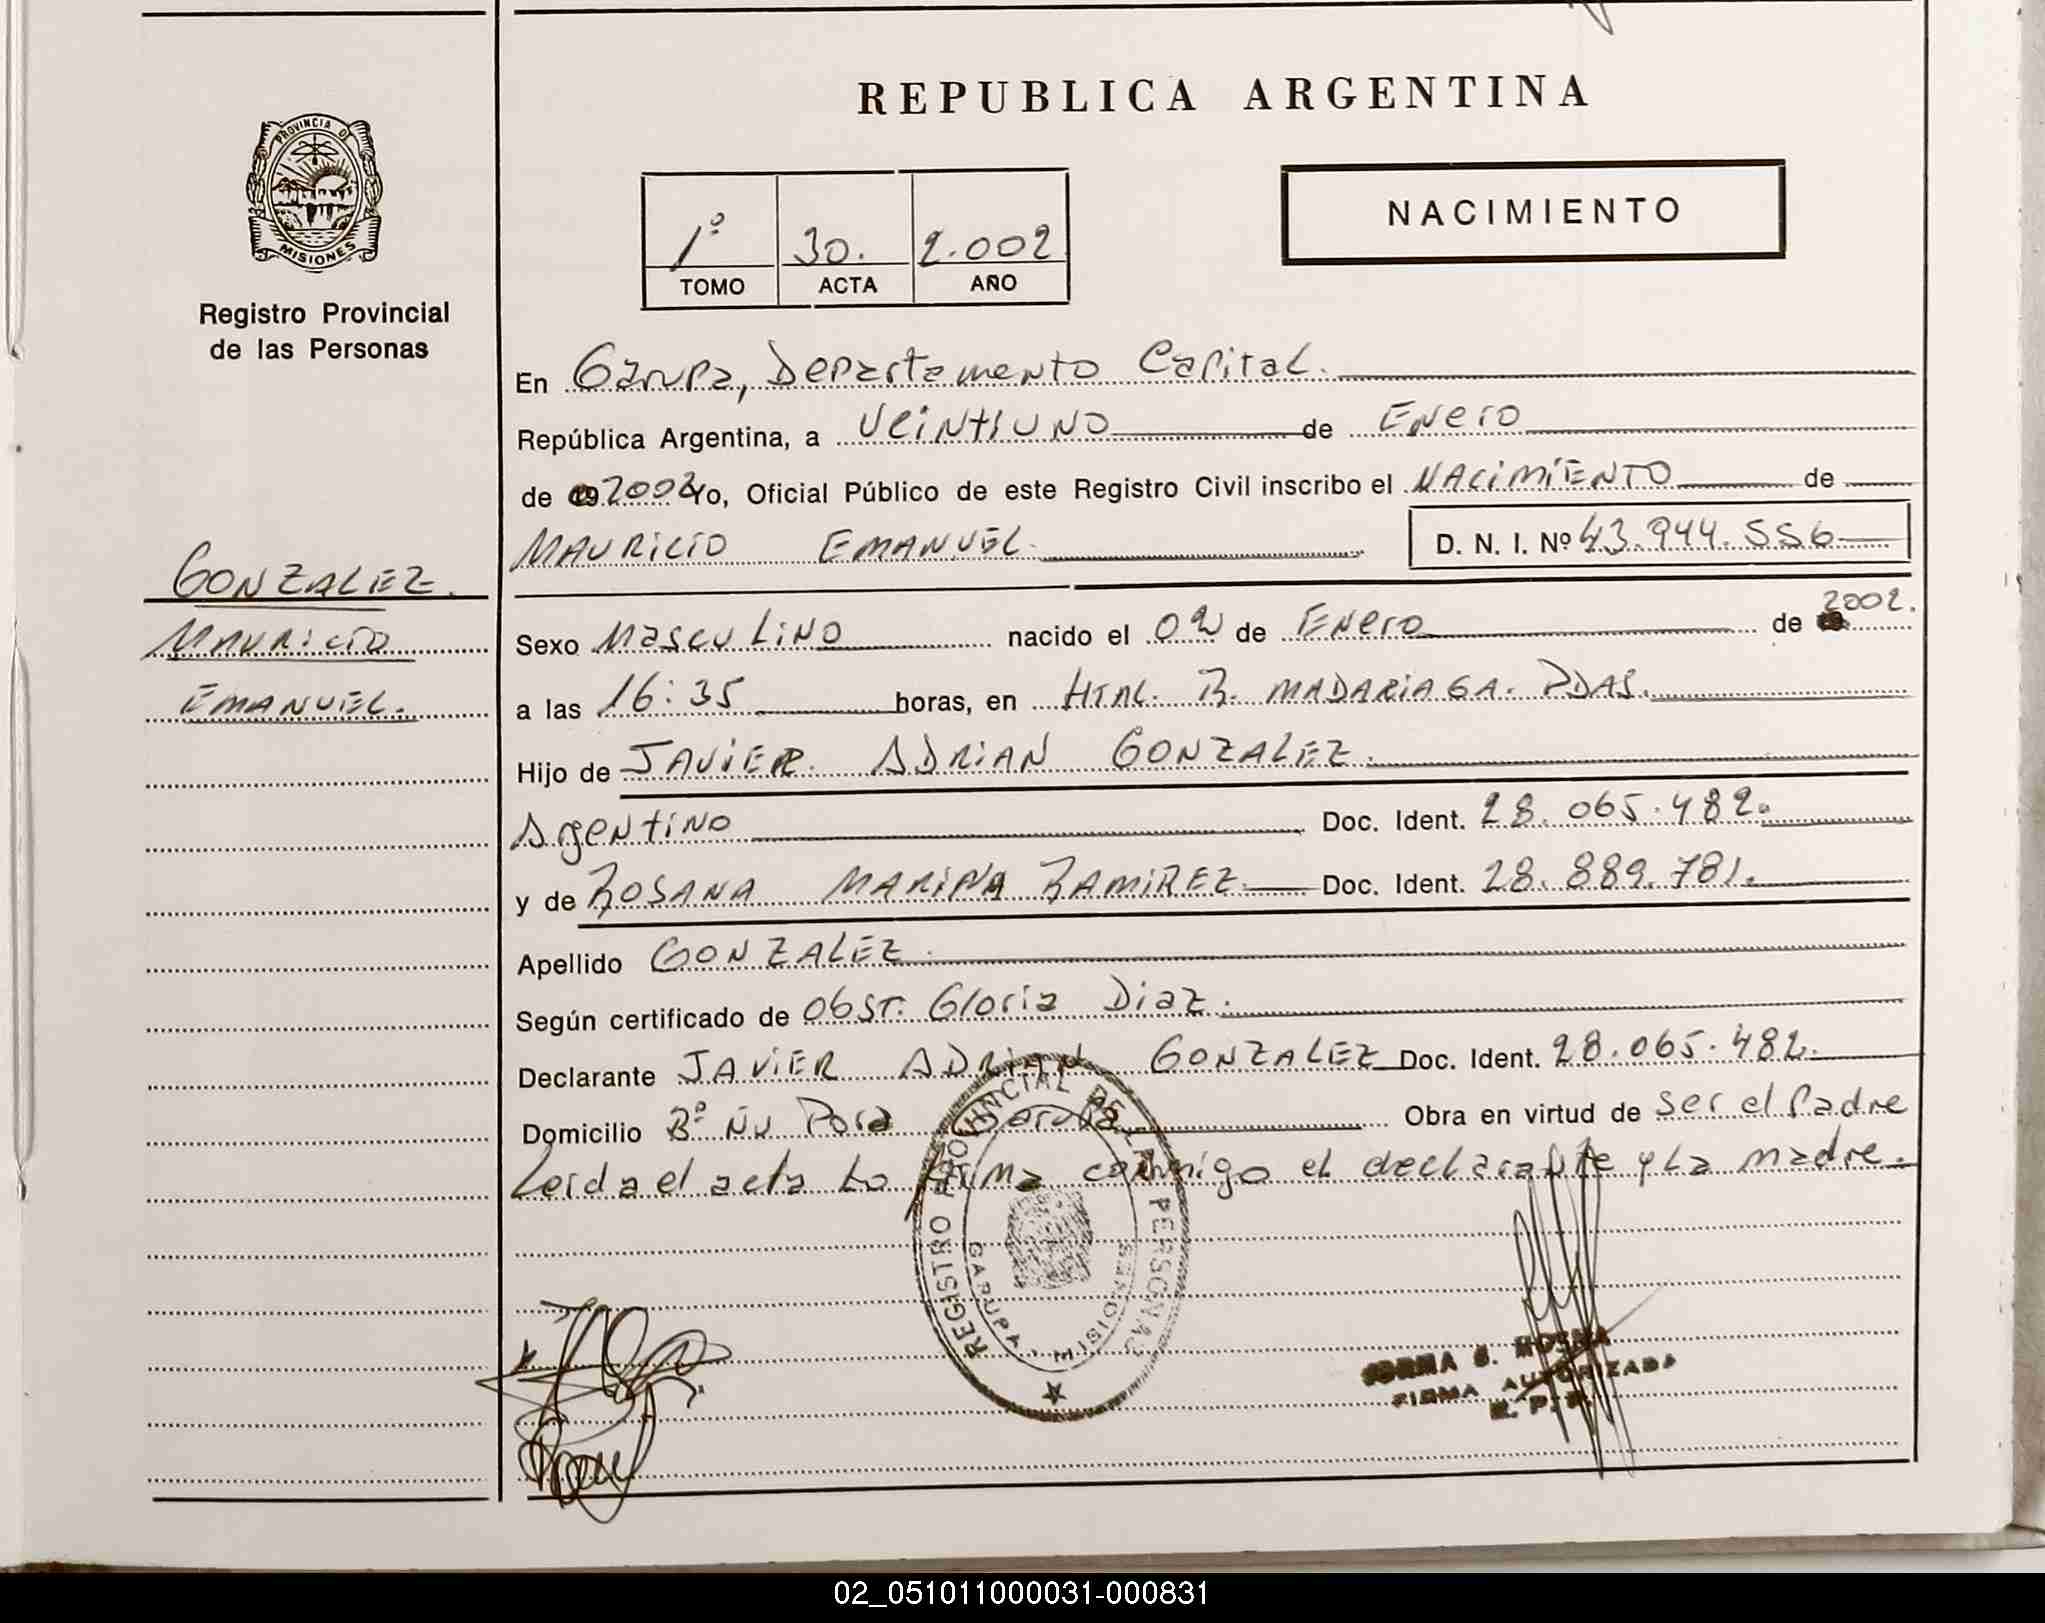 REPUBLICA ARGENTINA
PROVINCIA DE
MISIONES
Registro Provincial
de las Personas
1º 30. 2.002
TOMO ACTA AÑO
NACIMIENTO
En Garupa, Departamento Capital.
República Argentina, a Veintiuno de Enero
de 2002 Yo, Oficial Público de este Registro Civil inscribo el NACIMIENTO de
MAURICIO EMANUEL D. N. I. Nº 43.944.556
GONZALEZ.
MAURICIO
EMANUEL.
Sexo Masculino nacido el 02 de Enero de 2002.
a las 16:35 horas, en HTAL. R. MADARIAGA. PDAS.
Hijo de JAVIER ADRIAN GONZALEZ.
Argentino Doc. Ident. 28.065.482.
y de ROSANA MARINA RAMIREZ Doc. Ident. 28.889.781.
Apellido GONZALEZ.
Según certificado de Obst. Gloria Diaz.
Declarante JAVIER ADRIAN GONZALEZ Doc. Ident. 28.065.482.
Domicilio Bº Ñu Pora Garupa Obra en virtud de ser el Padre
Leida el acta la firma conmigo el declarante y la madre.
REGISTRO PROVINCIAL DE LAS PERSONAS
GARUPA MISIONES
FIRMA AUTORIZADA
R. P. P.
02_051011000031-000831